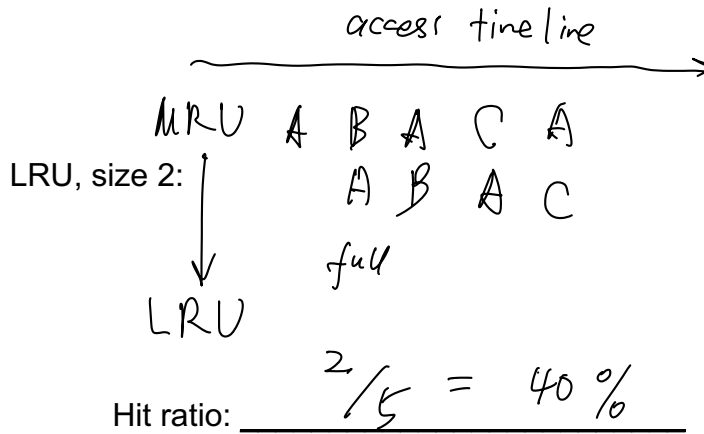 access timeline
MRU A B A C A
LRU, size 2:
A B A C
full
LRU
2/5 = 40 %
Hit ratio: